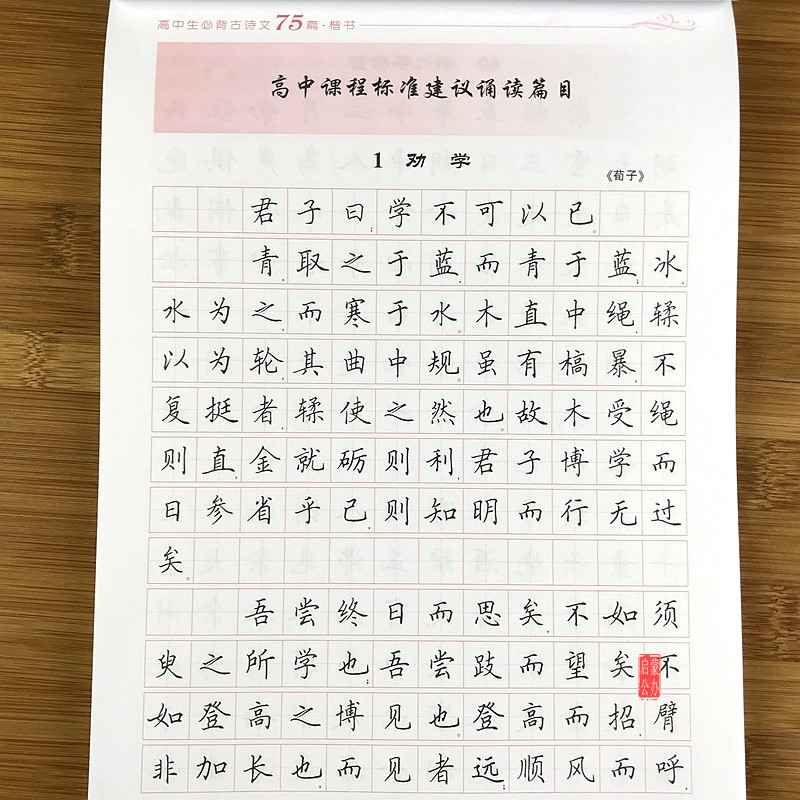 高中生必背古诗文75篇·楷书
高中课程标准建议诵读篇目
1 劝 学
《荀子》
君子曰：学不可以已。
青，取之于蓝，而青于蓝；冰，
水为之，而寒于水。木直中绳，𫐓
以为轮，其曲中规。虽有槁暴，不
复挺者，𫐓使之然也。故木受绳
则直，金就砺则利，君子博学而
日参省乎己，则知明而行无过
矣。
吾尝终日而思矣，不如须
臾之所学也；吾尝跂而望矣，不
如登高之博见也。登高而招，臂
非加长也，而见者远；顺风而呼，
启蒙
公办